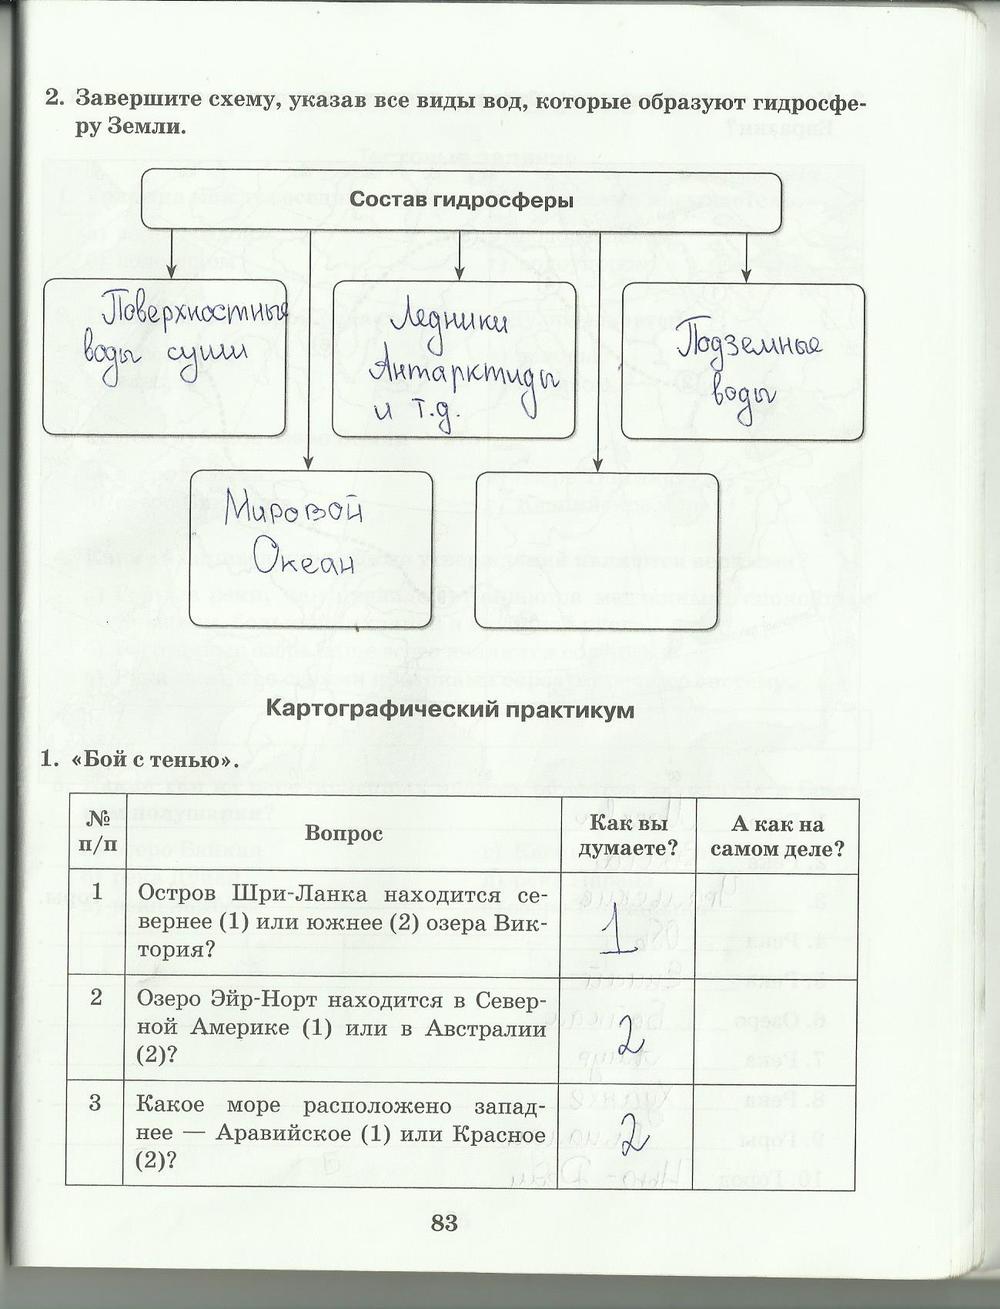 2. Завершите схему, указав все виды вод, которые образуют гидросфе-
ру Земли.
Состав гидросферы
Поверхностные
воды суши
Ледники
Антарктиды
и т.д.
Подземные
воды
Мировой
Океан
Картографический практикум
1. «Бой с тенью».
№
п/п
Вопрос
Как вы
думаете?
А как на
самом деле?
1
Остров Шри-Ланка находится се-
вернее (1) или южнее (2) озера Вик-
тория?
1
2
Озеро Эйр-Норт находится в Север-
ной Америке (1) или в Австралии
(2)?
2
3
Какое море расположено запад-
нее — Аравийское (1) или Красное
(2)?
2
83